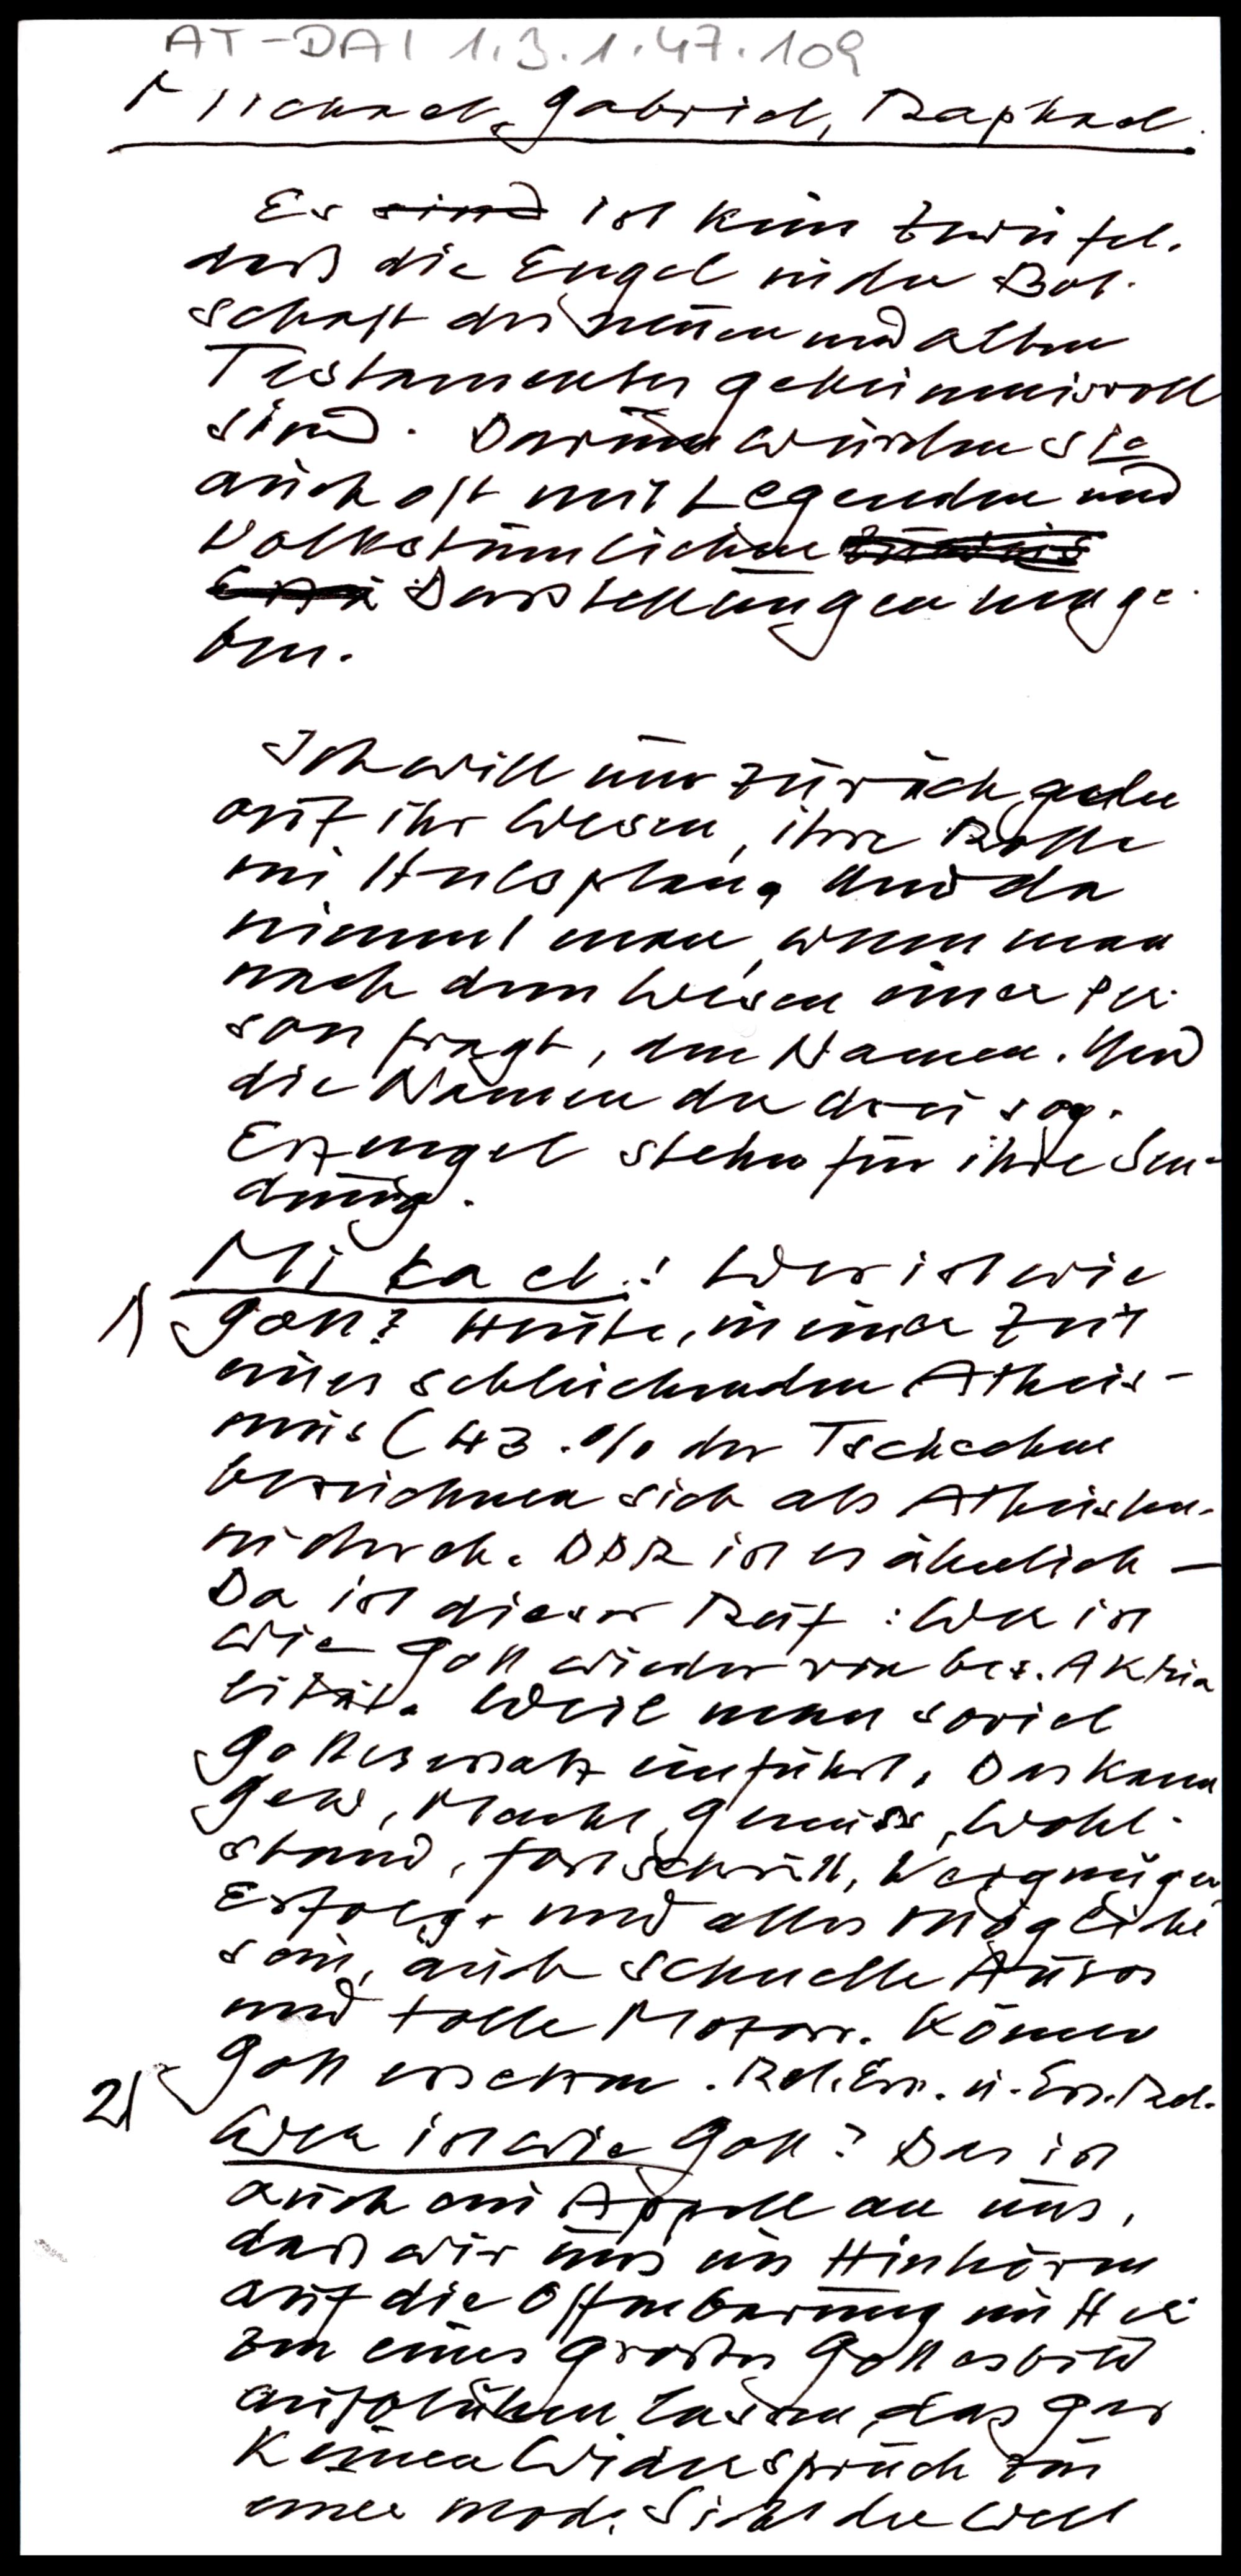 AT-DAI 1.3.1.47.109
Michael, Gabriel, Raphael.
Es sind ist kein Zweifel,
daß die Engel in der Bot-
schaft des neuen und alten
Testamentes geheimnisvoll
sind. Darum wurden sie
auch oft mit Legenden und
Volkstümlichen
Darstellungen umge-
ben.
Ich will nur zurückgehen
auf ihr Wesen, ihre Rolle
im Heilsplan. Und da
nimmt man, wenn man
nach dem Wesen einer Per-
son fragt, den Namen. Und
die Namen der drei sog.
Erzengel stehen für ihre Sen-
dung.
1) Mi ka el: Wer ist wie
Gott? Heute, in einer Zeit
eines schleichenden Atheis-
mus (43 % der Tschechen
bezeichnen sich als Atheisten.
in der eh. DDR ist es ähnlich –
Da ist dieser Ruf: Wer ist
wie Gott wieder von bes. Aktua
lität. Weil man soviel
Gottesersatz einführt. Das kann
Geld, Macht, Genuss, Wohl-
stand, Fortschritt, Vergnügen,
Erfolg, und alles Mögliche
sein, auch schnelle Autos
und tolle Motorr. Können
Gott ersetzen. Rel. Ers. u. Ers. Rel.
2) Wer ist wie Gott? Das ist
auch ein Appell an uns,
daß wir uns im Hinhören
auf die Offenbarung im Her-
zen eines großes Gottesbild
aufblühen lassen, das gar
keinen Widerspruch zu
einer mod. Sicht der Welt